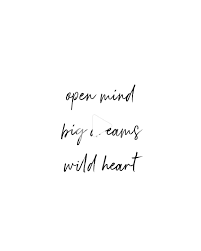 open mind
big dreams
wild heart